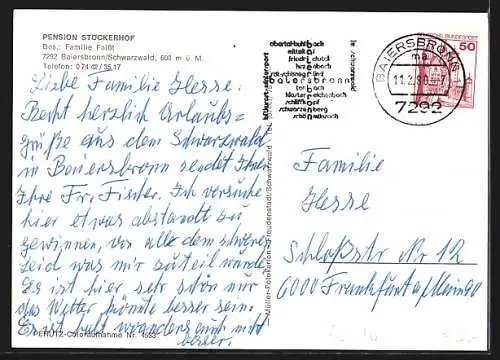 PENSION STÜCKERHOF
Bes.: Familie Faißt
7292 Baiersbronn/Schwarzwald, 600 m ü. M.
Telefon: 0 74 42 / 35 17
Liebe Familie Hesse:
Recht herzlich Urlaubs=
grüße aus dem Schwarzwald
in Baiersbronn sendet Ihnen
Ihre Fr. Fischer. Ich versuche
hier etwas abstandt zu
gewinnen, von alle dem schweren
Leid was mir zuteil wurde.
Es ist hier sehr schön nur
das Wetter könnte besser sein.
Es ist bald woanders auch nicht
besser.
PERUTZ-Coloraufnahme Nr. 4523
Müller-Fotokarten Freudenstadt/Schwarzwald
obertal-buhlbach
mitteltal
friedrichstal
huzenbach
baiersbronn
tonbach
klosterreichenbach
schliffkopf
schwarzenberg
schönmünzach
im schwarzwald
BAIERSBRONN
ma
11.2.80
7292
DEUTSCHE BUNDESPOST
50
Familie
Hesse
Schloßstr Nr 12
6000 Frankfurt a/Main 90